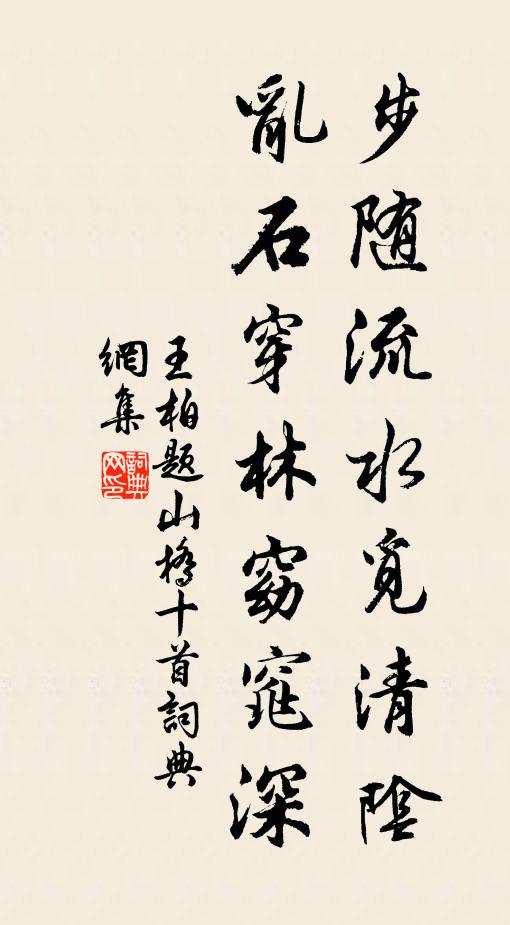 步随流水覓清陰
亂石穿林窈窕深
王柏題山橋十首詞典
網集
詞典
网印